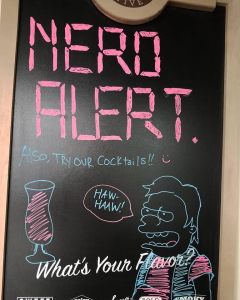 NERD
ALERT.
ALSO, TRY OUR COCKTAILS!!
HAW-
HAAW!
What's Your Flavor?